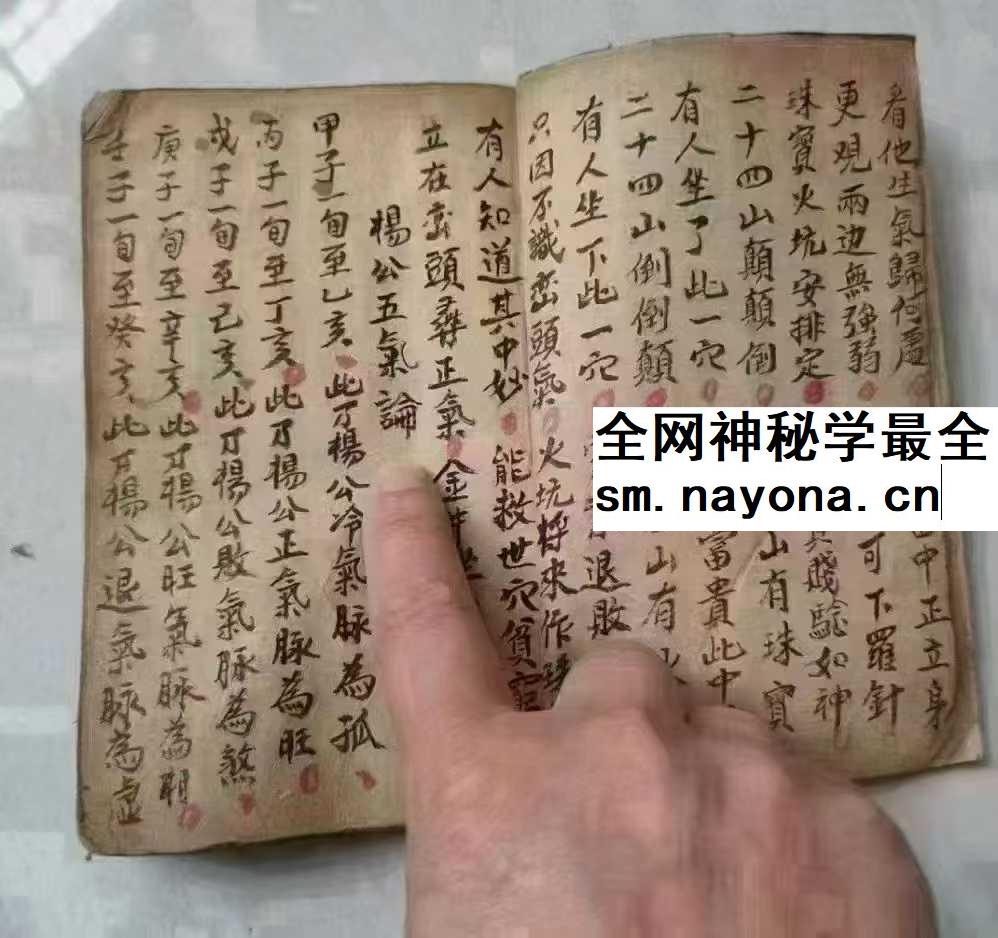 看他生氣歸何處
中正立身
更观兩边無強弱
可下羅針
珠寶火坑安排定
賤驗如神
二十四山顛顛倒
山有珠寶
有人坐了此一穴
富貴此中
二十四山倒倒顛
山有火
有人坐下此一穴
退敗
只因不識巒頭氣
火坑将來作珠
有人知道其中妙
能救世穴貧窮
立在巒頭尋正氣
金井
楊公五氣論
甲子一旬至乙亥 此乃楊公冷氣脉為孤
丙子一旬至丁亥 此乃楊公正氣脉為旺
戊子一旬至己亥 此乃楊公敗氣脉為煞
庚子一旬至辛亥 此乃楊公旺氣脉為相
壬子一旬至癸亥 此乃楊公退氣脉為虛
全网神秘学最全
sm.nayona.cn